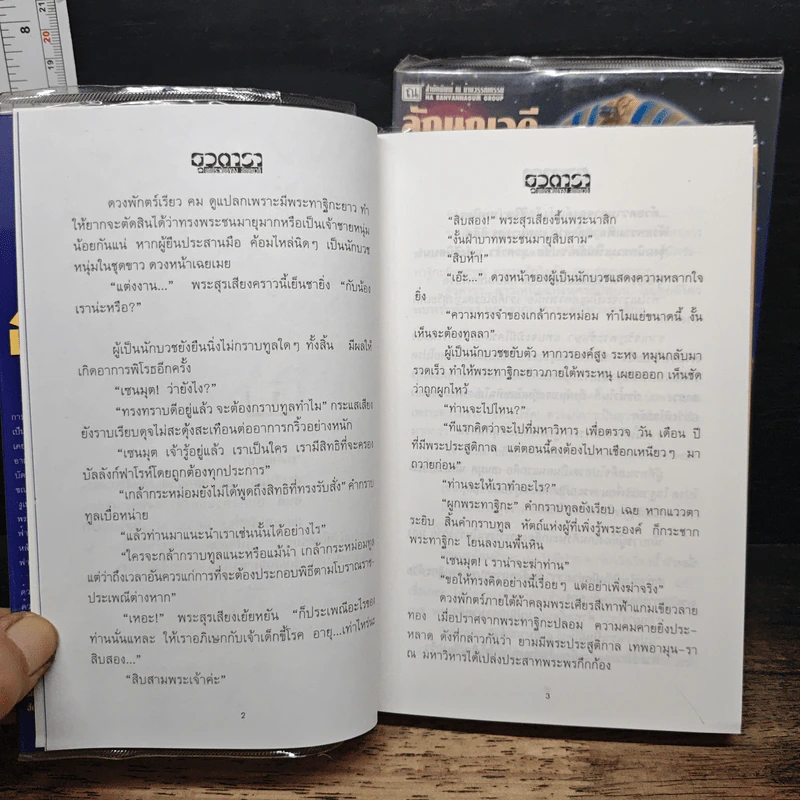 8
21
20
19
ณ สำนักพิมพ์ ณ บ้านวรรณกรรม
NA BANVANNAGUM GROUP
ดวงพักตร์เรียว คม ดูแปลกเพราะมีพระทาฐิกะยาว ทำ
ให้ยากจะตัดสินได้ว่าทรงพระชนมายุมากหรือเป็นเจ้าชายหนุ่ม
น้อยกันแน่ หากผู้ยืนประสานมือ ค้อมไหล่นิดๆ เป็นนักบวช
หนุ่มในชุดขาว ดวงหน้าเฉยเมย
“แต่งงาน...” พระสุรเสียงคราวนี้เย็นชายิ่ง “กับน้อง
เราน่ะหรือ?”
ผู้เป็นนักบวชยังยืนนิ่งไม่กราบทูลใดๆ ทั้งสิ้น มีผลให้
เกิดอาการพิโรธอีกครั้ง
“เซนมุต! ว่ายังไง?”
“ทรงทราบดีอยู่แล้ว จะต้องกราบทูลทำไม” กระแสเสียง
ยังราบเรียบดุจไม่สะดุ้งสะเทือนต่ออาการกริ้วอย่างหนัก
“เซนมุต เจ้ารู้อยู่แล้ว เราเป็นใคร เรามีสิทธิที่จะครอง
บัลลังก์ฟาโรห์โดยถูกต้องทุกประการ”
“เกล้ากระหม่อมยังไม่ได้พูดถึงสิทธิที่ทรงรับสั่ง” คำกราบ
ทูลเบื่อหน่าย
“แล้วท่านมาแนะนำเราเช่นนั้นได้อย่างไร”
“ใครจะกล้ากราบทูลแนะหรือแม้นำ เกล้ากระหม่อมทูล
แต่ว่าถึงเวลาอันควรแก่การที่จะต้องประกอบพิธีตามโบราณราช-
ประเพณีต่างหาก”
“เหอะ!” พระสุรเสียงเย้ยหยัน “ก็ประเพณีอะไรของ
ท่านนั่นแหละ ให้เราอภิเษกกับเจ้าเด็กขี้โรค อายุ...เท่าไหร่นะ
สิบสอง...”
“สิบสามพระเจ้าค่ะ”
2
“สิบสอง!” พระสุรเสียงขึ้นพระนาสิก
“งั้นฝ่าบาทพระชนมายุสิบสาม”
“สิบห้า!”
“เอ๊ะ...” ดวงหน้าของผู้เป็นนักบวชแสดงความหลากใจ
ยิ่ง
“ความทรงจำของเกล้ากระหม่อม ทำไมแย่ขนาดนี้ งั้น
เห็นจะต้องทูลลา”
ผู้เป็นนักบวชขยับตัว หากวรองค์สูง ระหง หมุนกลับมา
รวดเร็ว ทำให้พระทาฐิกะยาวภายใต้พระหนุ เผยอออก เห็นชัด
ว่าถูกผูกไหว้
“ท่านจะไปไหน?”
“ทีแรกคิดว่าจะไปที่มหาวิหาร เพื่อตรวจ วัน เดือน ปี
ที่มีพระประสูติกาล แต่ตอนนี้คงต้องไปหาเชือกเหนียวๆ มา
ถวายก่อน”
“ท่านจะให้เราทำอะไร?”
“ผูกพระทาฐิกะ” คำกราบทูลยังเรียบ เฉย หากแววตา
ระยิบ สิ้นคำกราบทูล หัตถ์แห่งผู้ที่เพิ่งรู้พระองค์ ก็กระชาก
พระทาฐิกะ โยนลงบนพื้นหิน
“เซนมุต! เราน่าจะฆ่าท่าน”
“ขอให้ทรงคิดอย่างนี้เรื่อยๆ แต่อย่าเพิ่งฆ่าจริง”
ดวงพักตร์ภายใต้ผ้าคลุมพระเศียรสีเทาฟ้าแกมเขียวลาย
ทอง เมื่อปราศจากพระทาฐิกะปลอม ความคมคายยิ่งประ-
หลาด ดังที่กล่าวกันว่า ยามมีพระประสูติกาล เทพอามุน-รา
ณ มหาวิหารได้เปล่งประสาทพระพรกึกก้อง
3